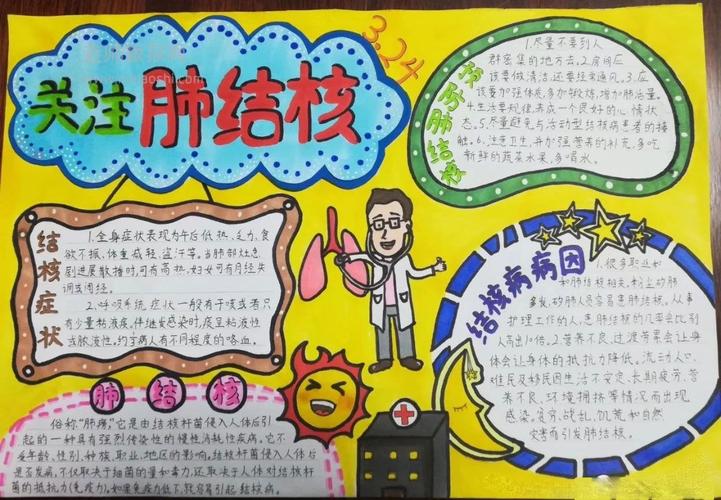 关注肺结核
3.24
预防肺结核
1.尽量不要到人
群密集的地方去。2.房间应
该要做清洁,还要经常通风。3.应
该要加强体质,多加锻炼,增加肺活量。
4.生活要规律,养成一个良好的心情状
态。5.尽量避免与活动型结核病患者的接
触。6.注意卫生,并加强营养的补充,多吃
新鲜的蔬菜水果,多喝水。
结核症状
1.全身症状表现为午后低热、乏力、食
欲不振、体重减轻、盗汗等。当肺部灶急
剧进展散播时,可有高热,妇女可有月经失
调或闭经。
2.呼吸系统症状一般有干咳或者只
有少量粘液痰。伴继发感染时,痰呈粘液性
或脓液性。约1/3病人有不同程度的咯血。
结核病病因
1.很多职业如
和肺结核相关,粉尘矽肺
多发,矽肺人员容易患肺结核。从事
护理工作的人,患肺结核的几率会比别
人高出10倍。2.营养不良、过渡劳累会让身
体会让身体的抵抗力降低。流动人口、
难民及移民因生活不安定、长期疲劳、营
养不良、环境拥挤等情况而出现
感染。贫穷、战乱、饥荒和自然
灾害而引发肺结核。
肺结核
俗称“肺痨”。它是由结核杆菌侵入人体后引
起的一种具有强烈传染性的慢性消耗性疾病。它不
受年龄、性别、种族、职业、地区的影响。结核杆菌侵入人体后
是否发病,不仅取决于细菌的量和毒力,还取决于人体对结核杆
菌的抵抗力(免疫力),如果免疫力低下,就容易引起结核病。